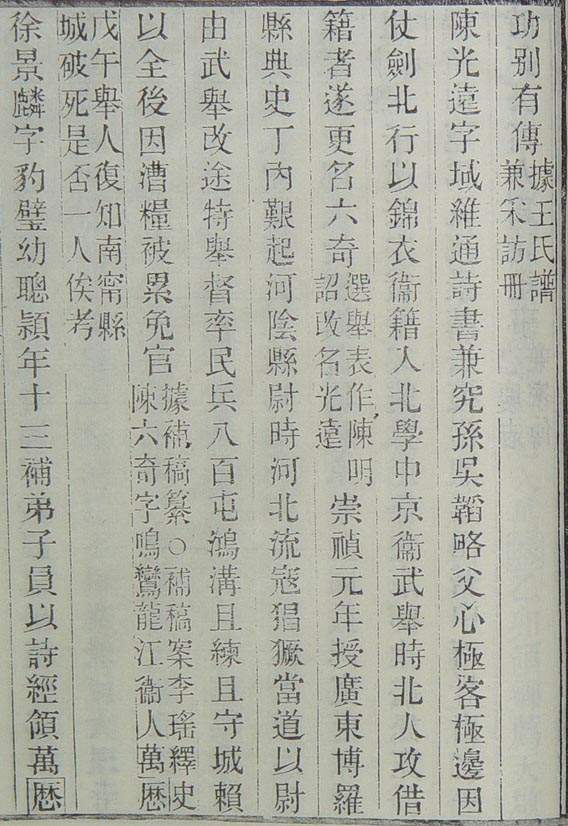 功別有傳據王氏譜兼采訪冊
陳光遠字域維通詩書兼究孫吳韜略父心極客極邊因
仗劍北行以錦衣衞籍入北學中京衞武舉時北人攻借
籍者遂更名六奇選舉表作陳明詔改名光遠崇禎元年授廣東博羅
縣典史丁內艱起河陰縣尉時河北流寇猖獗當道以尉
由武舉改途特舉督率民兵八百屯鴻溝且練且守城賴
以全後因漕糧被累免官據補稿纂○補稿案李瑤繹史陳六奇字鳴鸞龍江衞人萬厯
戊午舉人復知南甯縣城破死是否一人俟考
徐景麟字豹璧幼聰穎年十三補弟子員以詩經領萬厯